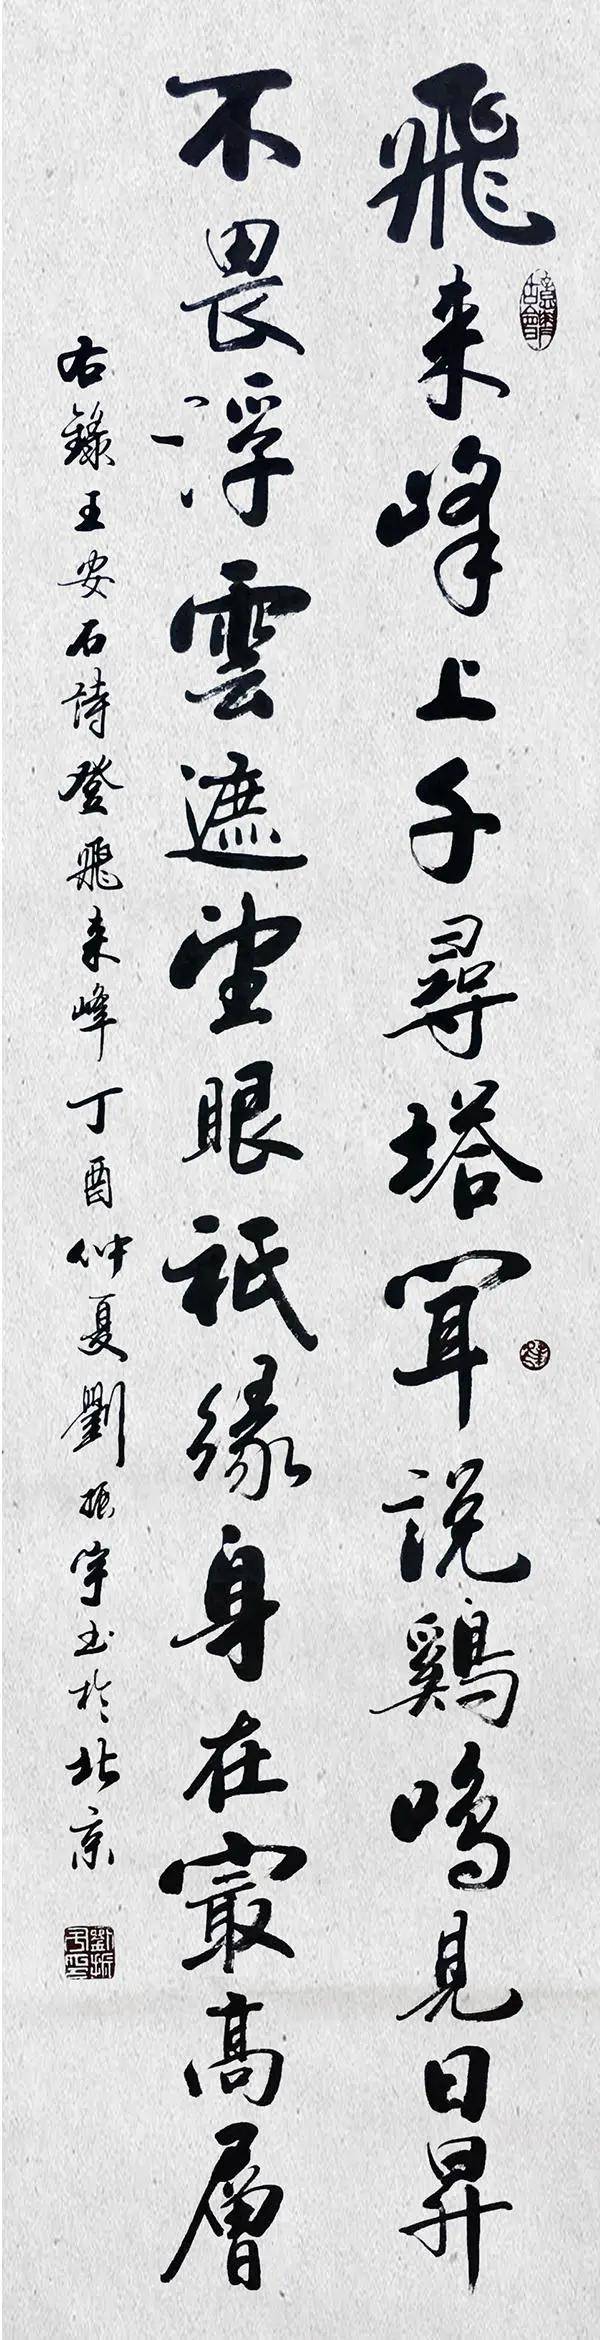 飛来峰上千尋塔聞説鷄鳴見日昇
不畏浮雲遮望眼祇緣身在㝡高層
右錄王安石詩登飛来峰丁酉仲夏劉振宇书於北京